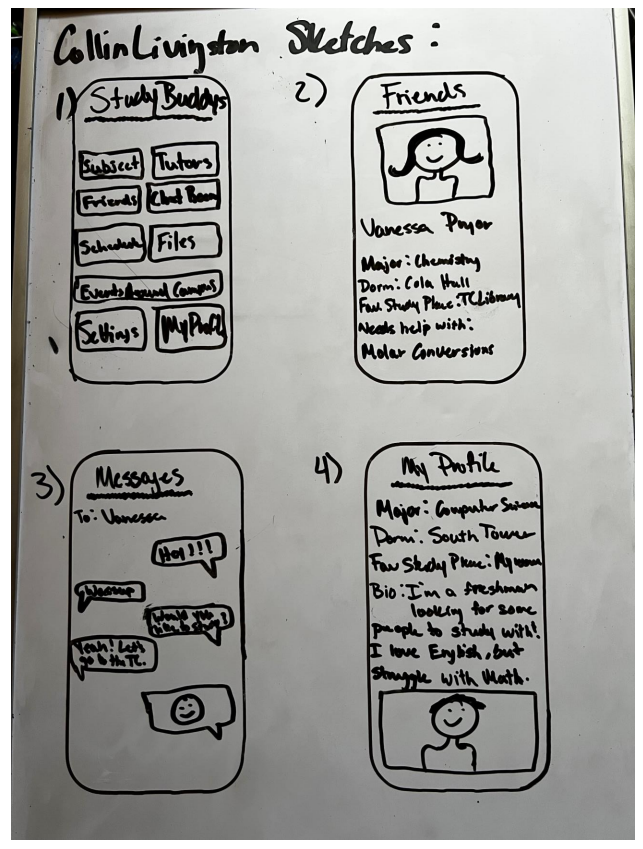 Collin Livingston Sketches:
1) Study Buddys
Subject
Tutors
Friends
Chat Room
Schedule
Files
Events Around Campus
Settings
My Profile
2) Friends
Vanessa Pryor
Major: Chemistry
Dorm: Cola Hall
Fav Study Place: TC Library
Needs help with:
Molar Conversions
3) Messages
To: Vanessa
Hey!!!
Wassup
Would you
like to study?
Yeah! Let's
go to the TC.
4) My Profile
Major: Computer Science
Dorm: South Tower
Fav Study Place: My room
Bio: I'm a freshman
looking for some
people to study with!
I love English, but
struggle with Math.